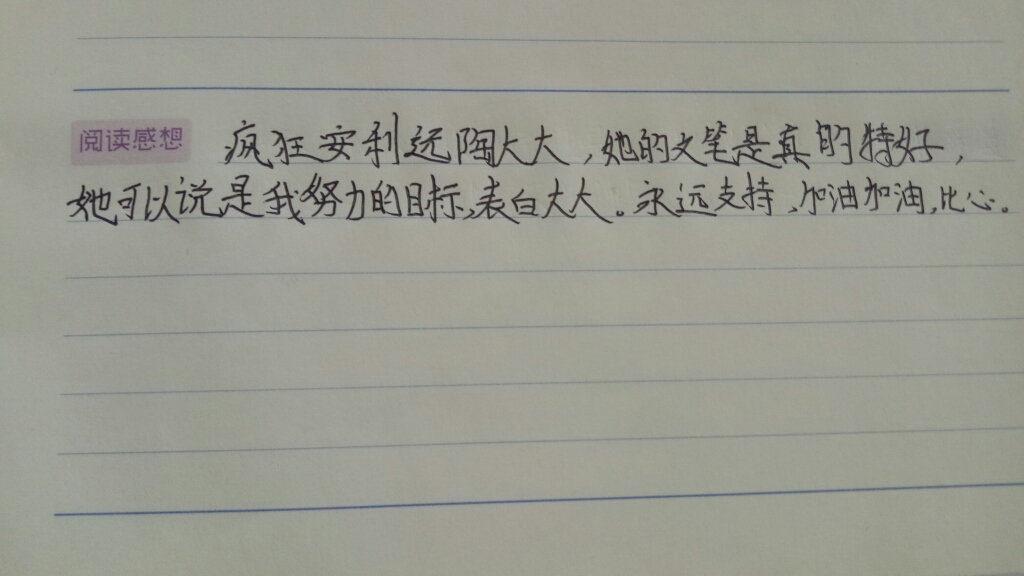 阅读感想 疯狂安利远陶大大，她的文笔是真的特好，
她可以说是我努力的目标，表白大大。永远支持，加油加油，比心。